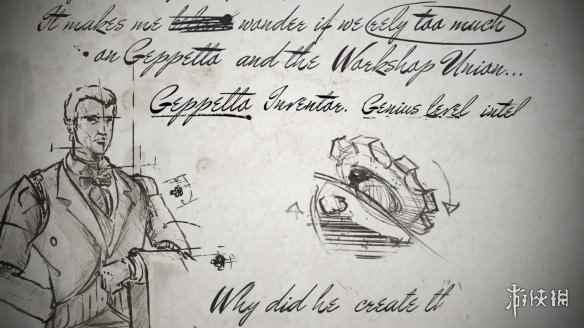 It makes me wonder if we rely too much
on Geppetto and the Workshop Union...
Geppetto Inventor. Genius level intel
Why did he create th
游侠网